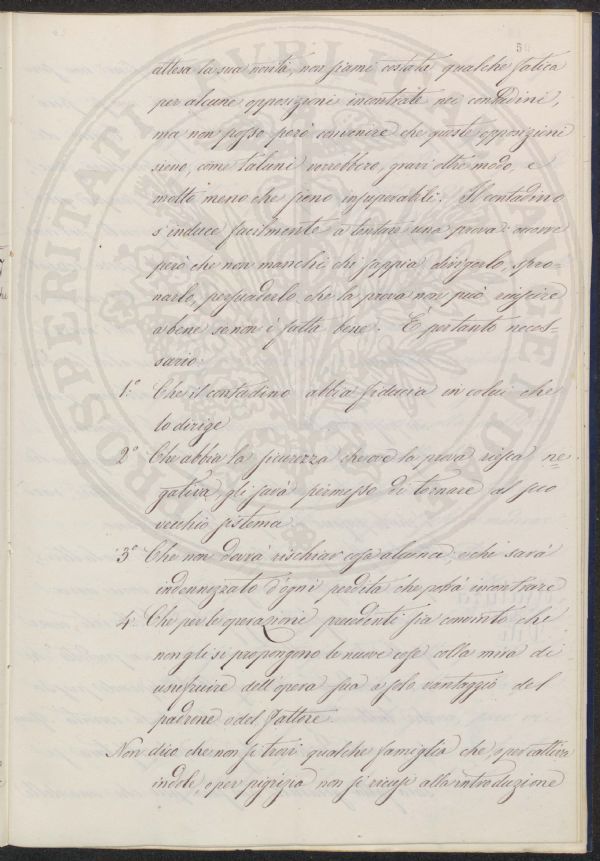 attesa la sua novità, non siami costata qualche fatica
per alcune opposizioni incontrate nei contadini,
ma non posso però convenire che queste opposizioni
sieno, come taluni vorrebbero, gravi oltre modo, e
molto meno che sieno insuperabili. Il contadino
s'induce facilmente a tentare una prova: occorre
però che non manchi chi sappia dirigerlo, spro-
narlo, persuaderlo, che la prova non può riuscire
a bene se non è fatta bene. È pertanto neces-
sario:
1.° Che il contadino abbia fiducia in colui che
lo dirige
2.° Che abbia la sicurezza che ove la prova riesca ne-
gativa, gli sarà permesso di tornare al suo
vecchio sistema
3.° Che non dovrà rischiar cosa alcuna, e chi sarà
indennizzato d'ogni perdita che potrà incontrare
4.° Che per le operazioni precedenti sia convinto che
non gli si propongono le nuove cose colla mira di
usufruire dell'opera sua a solo vantaggio del
padrone o del fattore.
Non dico che non si trovi qualche famiglia che, o per cattiva
indole, o per pigrizia non si ricusi alla introduzione
PROSPERITATI PUBLICAE